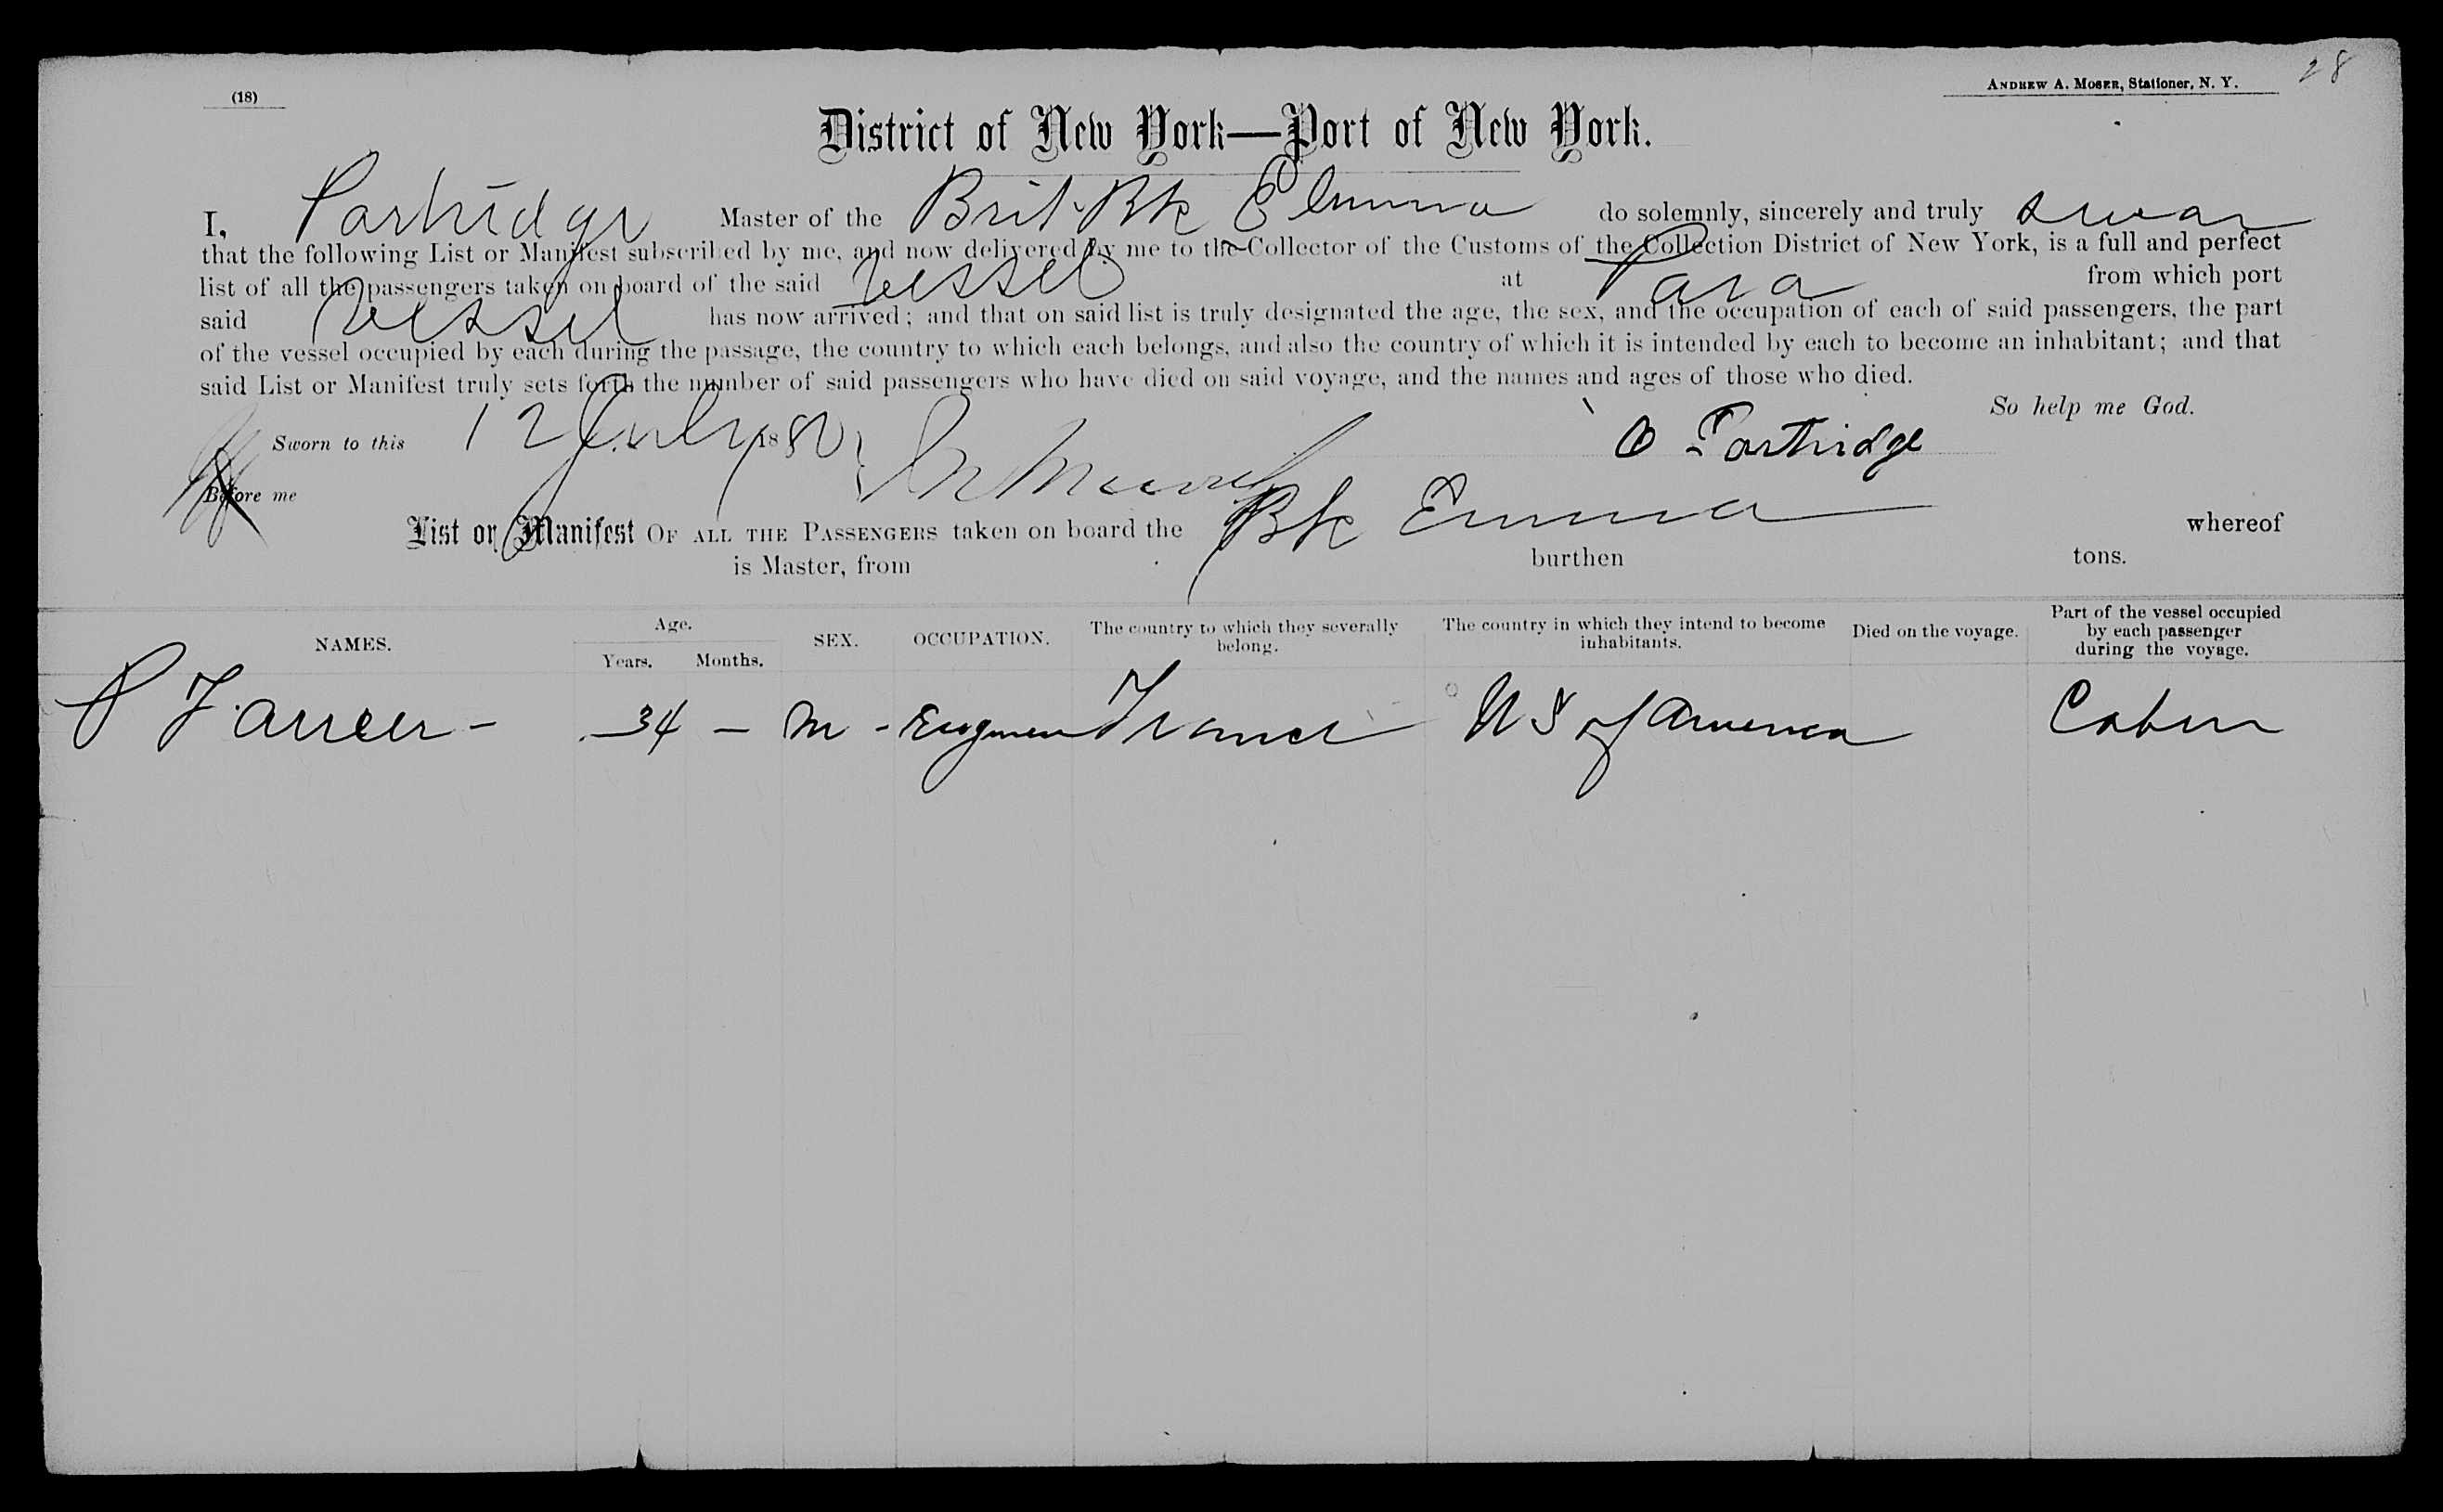 (18)
Andrew A. Moser, Stationer, N. Y.
28
District of New York—Port of New York.
I, Partridge Master of the Brit. Bk Emma do solemnly, sincerely and truly swear
that the following List or Manifest subscribed by me, and now delivered by me to the Collector of the Customs of the Collection District of New York, is a full and perfect
list of all the passengers taken on board of the said Vessel at Para from which port
said Vessel has now arrived; and that on said list is truly designated the age, the sex, and the occupation of each of said passengers, the part
of the vessel occupied by each during the passage, the country to which each belongs, and also the country of which it is intended by each to become an inhabitant; and that
said List or Manifest truly sets forth the number of said passengers who have died on said voyage, and the names and ages of those who died.
So help me God.
Sworn to this 12 July 1880
O Partridge
Before me
List or Manifest OF ALL THE PASSENGERS taken on board the Bk Emma whereof
is Master, from burthen tons.
NAMES. Age. Years. Months. SEX. OCCUPATION. The country to which they severally belong. The country in which they intend to become inhabitants. Died on the voyage. Part of the vessel occupied by each passenger during the voyage.
P 34 — M - Engineer France U S of America Cabin